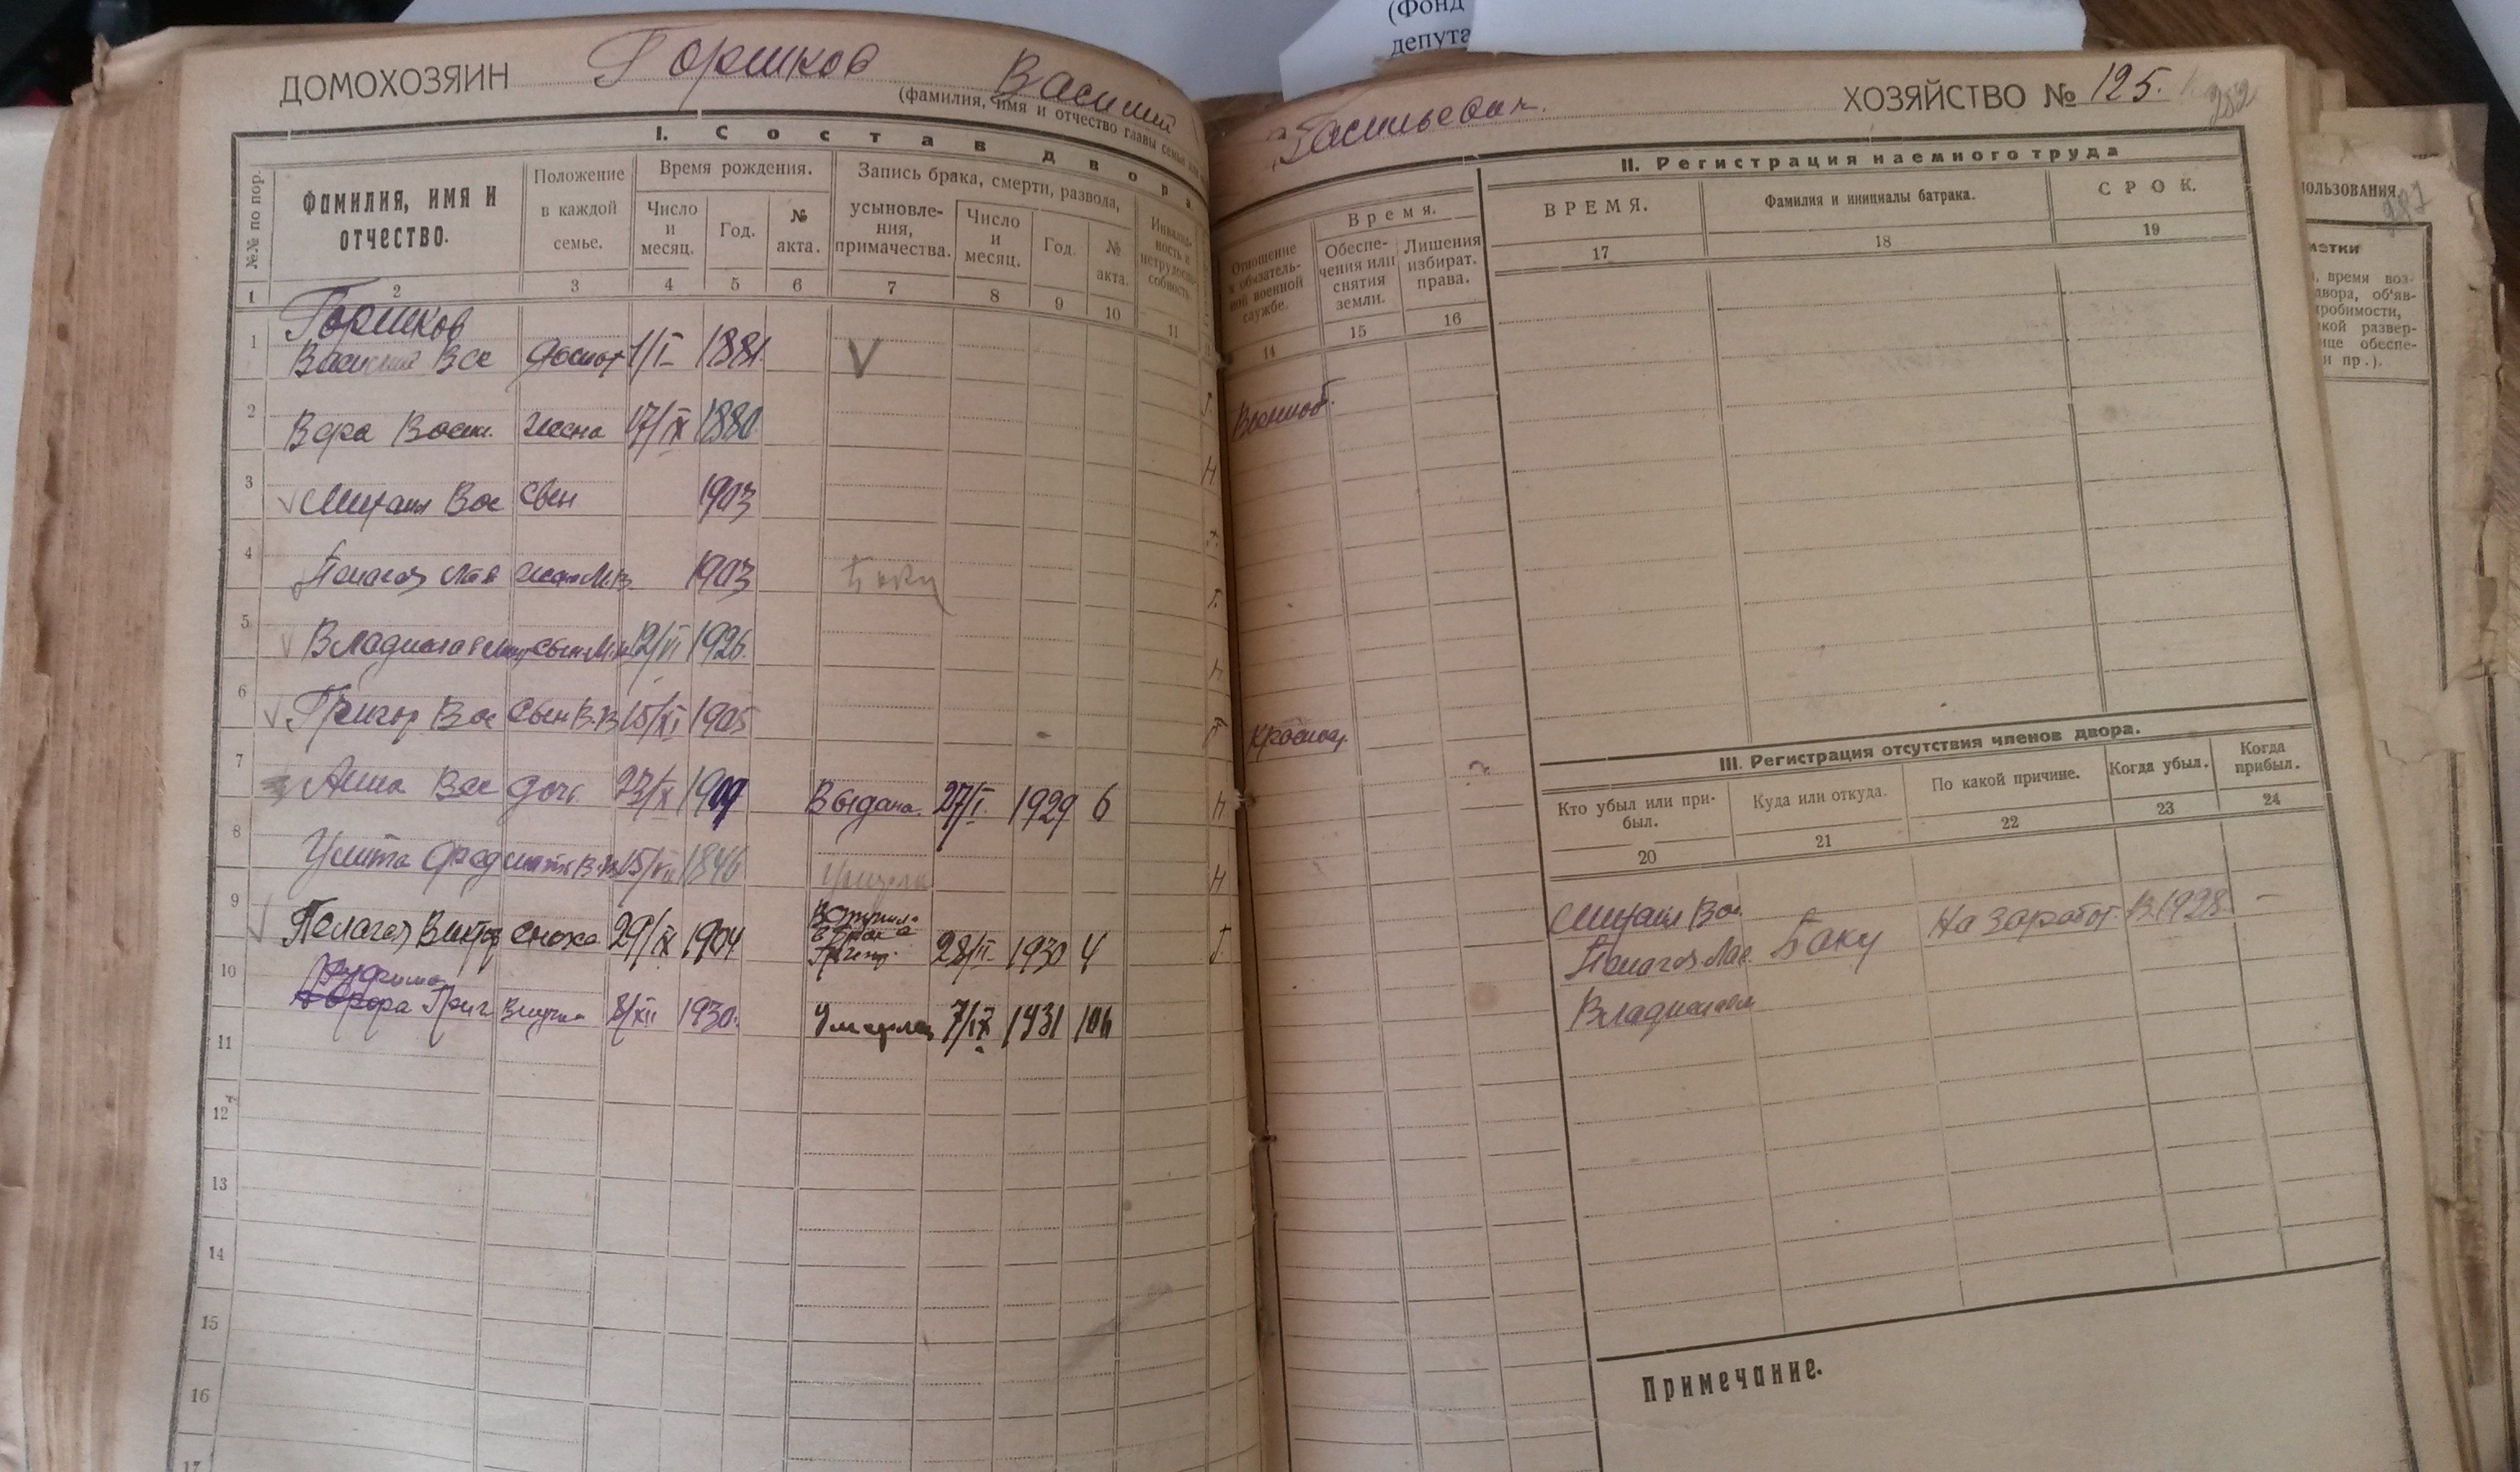 (Фонд
депута
ДОМОХОЗЯИН Горшков Василий
(фамилия, имя и отчество главы семьи
I. Состав двора
№№ по пор.
ФАМИЛИЯ, ИМЯ И ОТЧЕСТВО.
Положение в каждой семье.
Время рождения.
Число и месяц.
Год.
№ акта.
Запись брака, смерти, развода,
усыновле-
ния,
примачества.
Число и месяц.
Год.
№ акта.
Инвалид-
ность и
нетрудоспо-
собность.
1 2 3 4 5 6 7 8 9 10 11
Горшков
1 Василий Вас 1/I 1881 V
2 Вера Васил. жена 17/IX 1880
3 Михаил Вас сын 1903
4 жена М.В. 1903 Баку
5 Владислав сын М.В. 12/VI 1926
6 Григор Вас сын В.В. 15/XI 1905
7 Анна Вас дочь 23/X 1909 Выдана. 27/I. 1929 6
8 Улита мать В.В. 15/VII 1846 умерла
9 Пелагея Виктор сноха 29/IX 1904 Вступила в брак с Григор. 28/II 1930 4
10 Григ Внучка 8/XII 1930. Умерла 7/IX 1931 106
11
12
13
14
15
16
17
Васильевич.
ХОЗЯЙСТВО № 125.
282
Отношение
к обязатель-
ной военной
службе.
Время.
Обеспе-
чения или
снятия
земли.
Лишения
избират.
права.
14 15 16
Военноб.
Красноар
II. Регистрация наемного труда
ВРЕМЯ. Фамилия и инициалы батрака. СРОК.
17 18 19
III. Регистрация отсутствия членов двора.
Кто убыл или при-
был.
Куда или откуда.
По какой причине.
Когда убыл.
Когда прибыл.
20 21 22 23 24
Михаил Вас. Баку На заработ. В 1928. –
Владислав
Примечание.
ПОЛЬЗОВАНИЯ.
287
метки
, время воз-
двора, об'яв-
робимости,
кой развер-
ице обеспе-
и пр.).